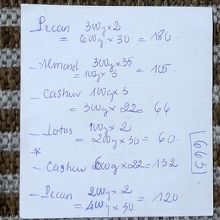 Pecan 300g x 2
= 600g x 30 = 180.
- Almond 300g x 35
= 100g x 3 = 105
- Cashew 100g x 3
= 300g x 22 = 66
- Lotus 100g x 2
= 200g x 30 = 60.
*
- Cashew 600g x 22 = 132
- Pecan 200g x 2
= 400g x 30 = 120
663